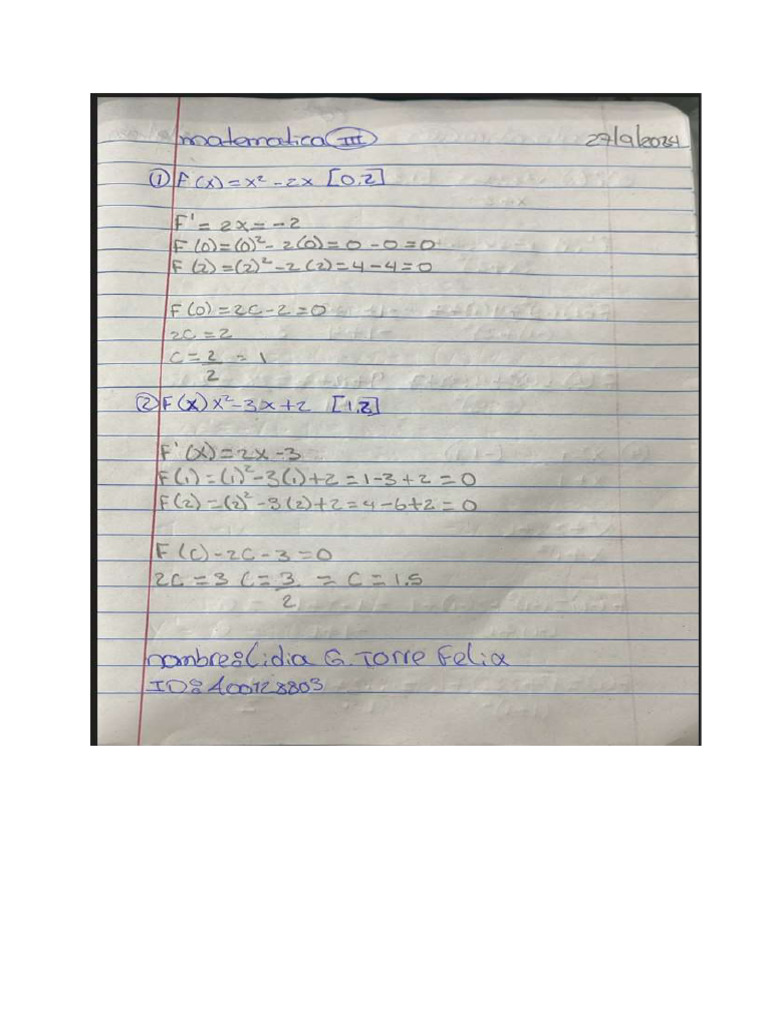 matematica III 27/9/2024
① F(x) = x² - 2x [0,2]
F' = 2x = -2
F(0) = (0)² - 2(0) = 0 - 0 = 0
F(2) = (2)² - 2(2) = 4 - 4 = 0
F(0) = 2C - 2 = 0
2C = 2
C = 2/2 = 1
② F(x) x² - 3x + 2 [1,2]
F'(x) = 2x - 3
F(1) = (1)² - 3(1) + 2 = 1 - 3 + 2 = 0
F(2) = (2)² - 3(2) + 2 = 4 - 6 + 2 = 0
F(C) - 2C - 3 = 0
2C = 3 C = 3/2 = C = 1.5
nombre: Lidia G. Torre Felix
ID: A00128803